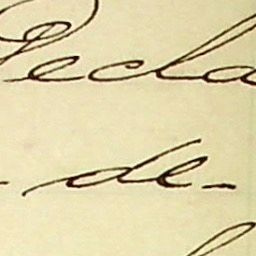 Decla
- de -